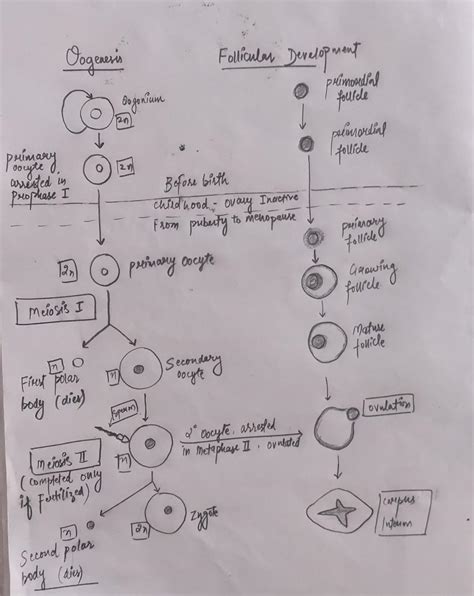 Oogenesis
Follicular Development
Oogonium
2n
primordial
follicle
primordial
follicle
primary
oocyte
arrested in
Prophase I
2n
Before birth
childhood - ovary Inactive
From puberty to menopause
primary
follicle
2n
primary oocyte
Growing
follicle
Meiosis I
Mature
follicle
n
First polar
body (dies)
n
Secondary
oocyte
sperm
2° oocyte, arrested
in metaphase II, ovulated
ovulation
Meiosis II
(completed only
if Fertilized)
n
n
Second polar
body (dies)
2n
Zygote
corpus
luteum